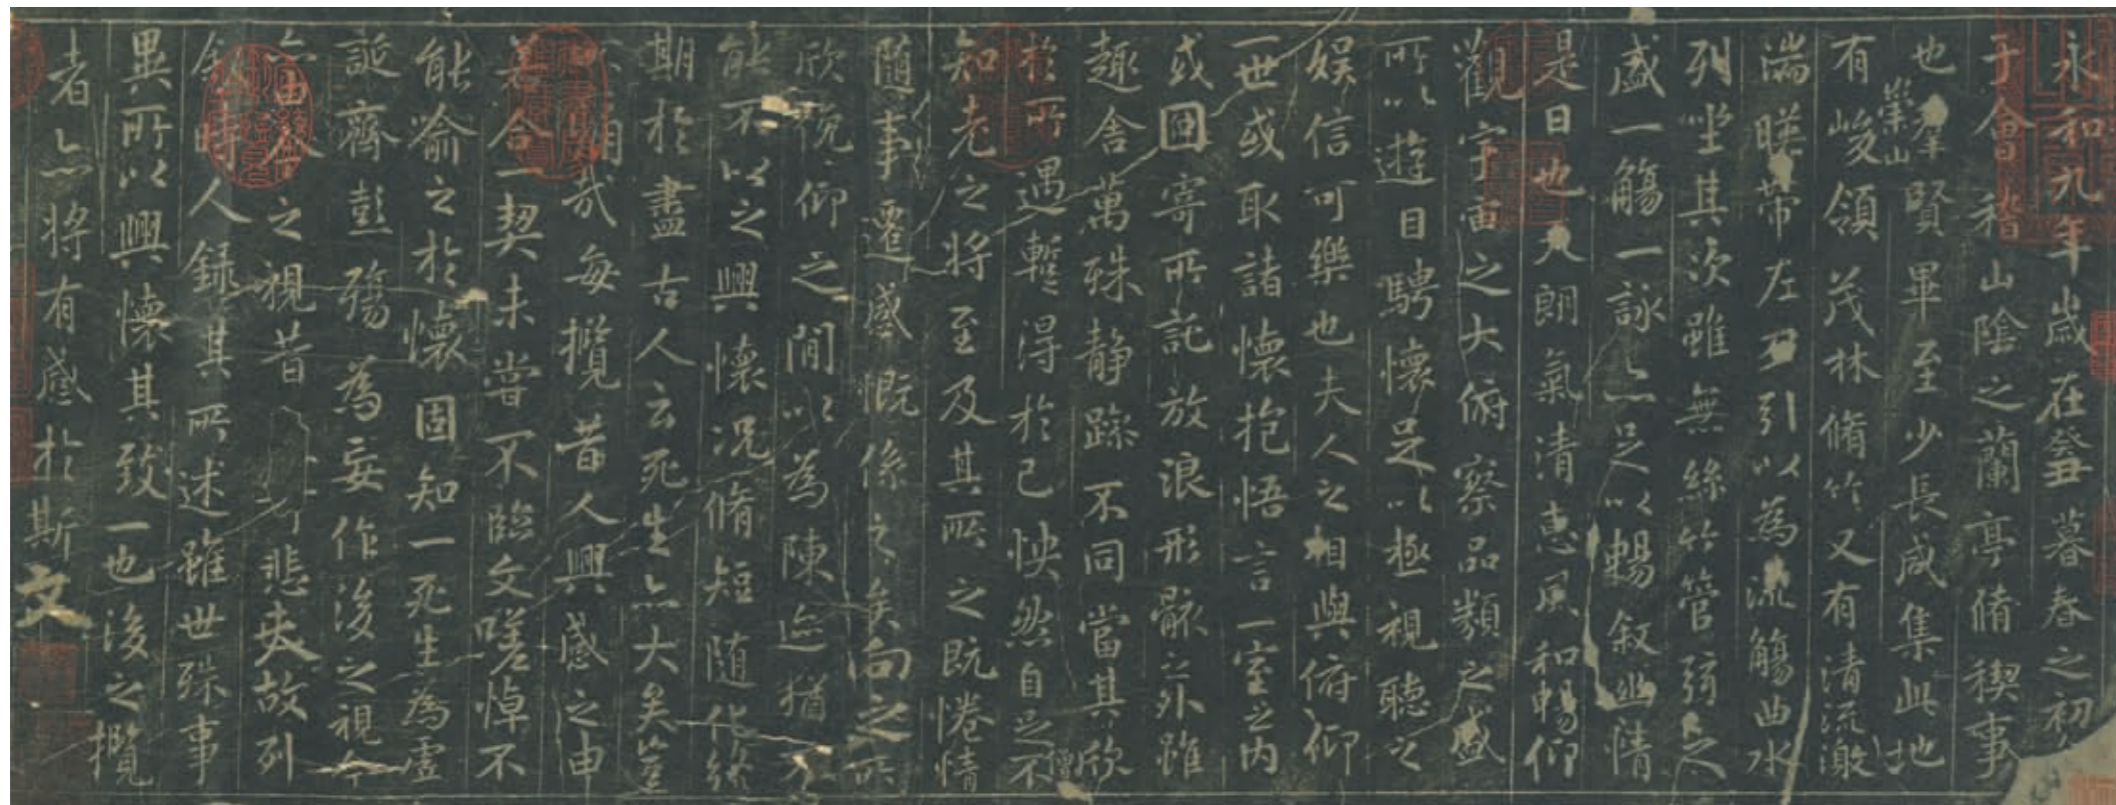 永和九年歲在癸丑暮春之初
于會稽山陰之蘭亭脩禊事
也羣賢畢至少長咸集此地
有崇山峻領茂林脩竹又有清流激
湍暎帶左右引以為流觴曲水
列坐其次雖無絲竹管弦之
盛一觴一詠亦足以暢敘幽情
是日也天朗氣清惠風和暢仰
觀宇宙之大俯察品類之盛
所以遊目騁懷足以極視聽之
娛信可樂也夫人之相與俯仰
一世或取諸懷抱悟言一室之內
或因寄所託放浪形骸之外雖
趣舍萬殊靜躁不同當其欣
於所遇蹔得於己怏然自足不
知老之將至及其所之既惓情
隨事遷感慨係之矣向之所
欣俛仰之間以為陳迹猶不
能不以之興懷況脩短隨化終
期於盡古人云死生亦大矣豈
不痛哉每攬昔人興感之由
若合一契未嘗不臨文嗟悼不
能喻之於懷固知一死生為虛
誕齊彭殤為妄作後之視今
亦由今之視昔悲夫故列
敘時人錄其所述雖世殊事
異所以興懷其致一也後之攬
者亦將有感於斯文